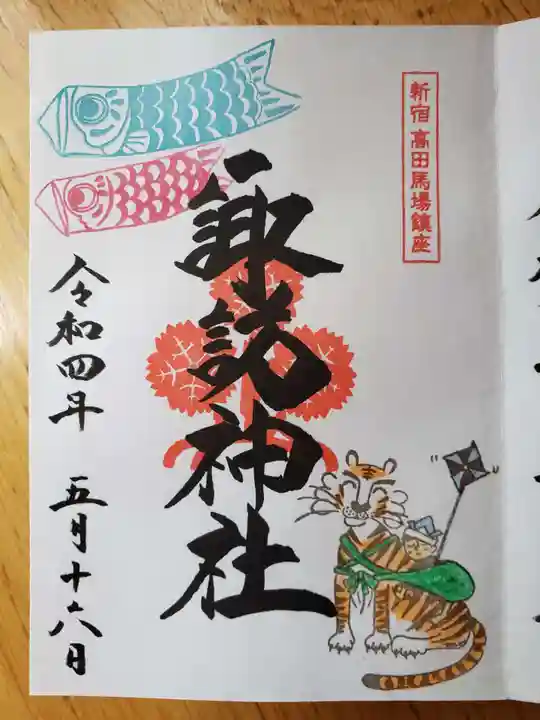 新宿 高田馬場鎮座
諏訪神社
令和四年 五月十六日